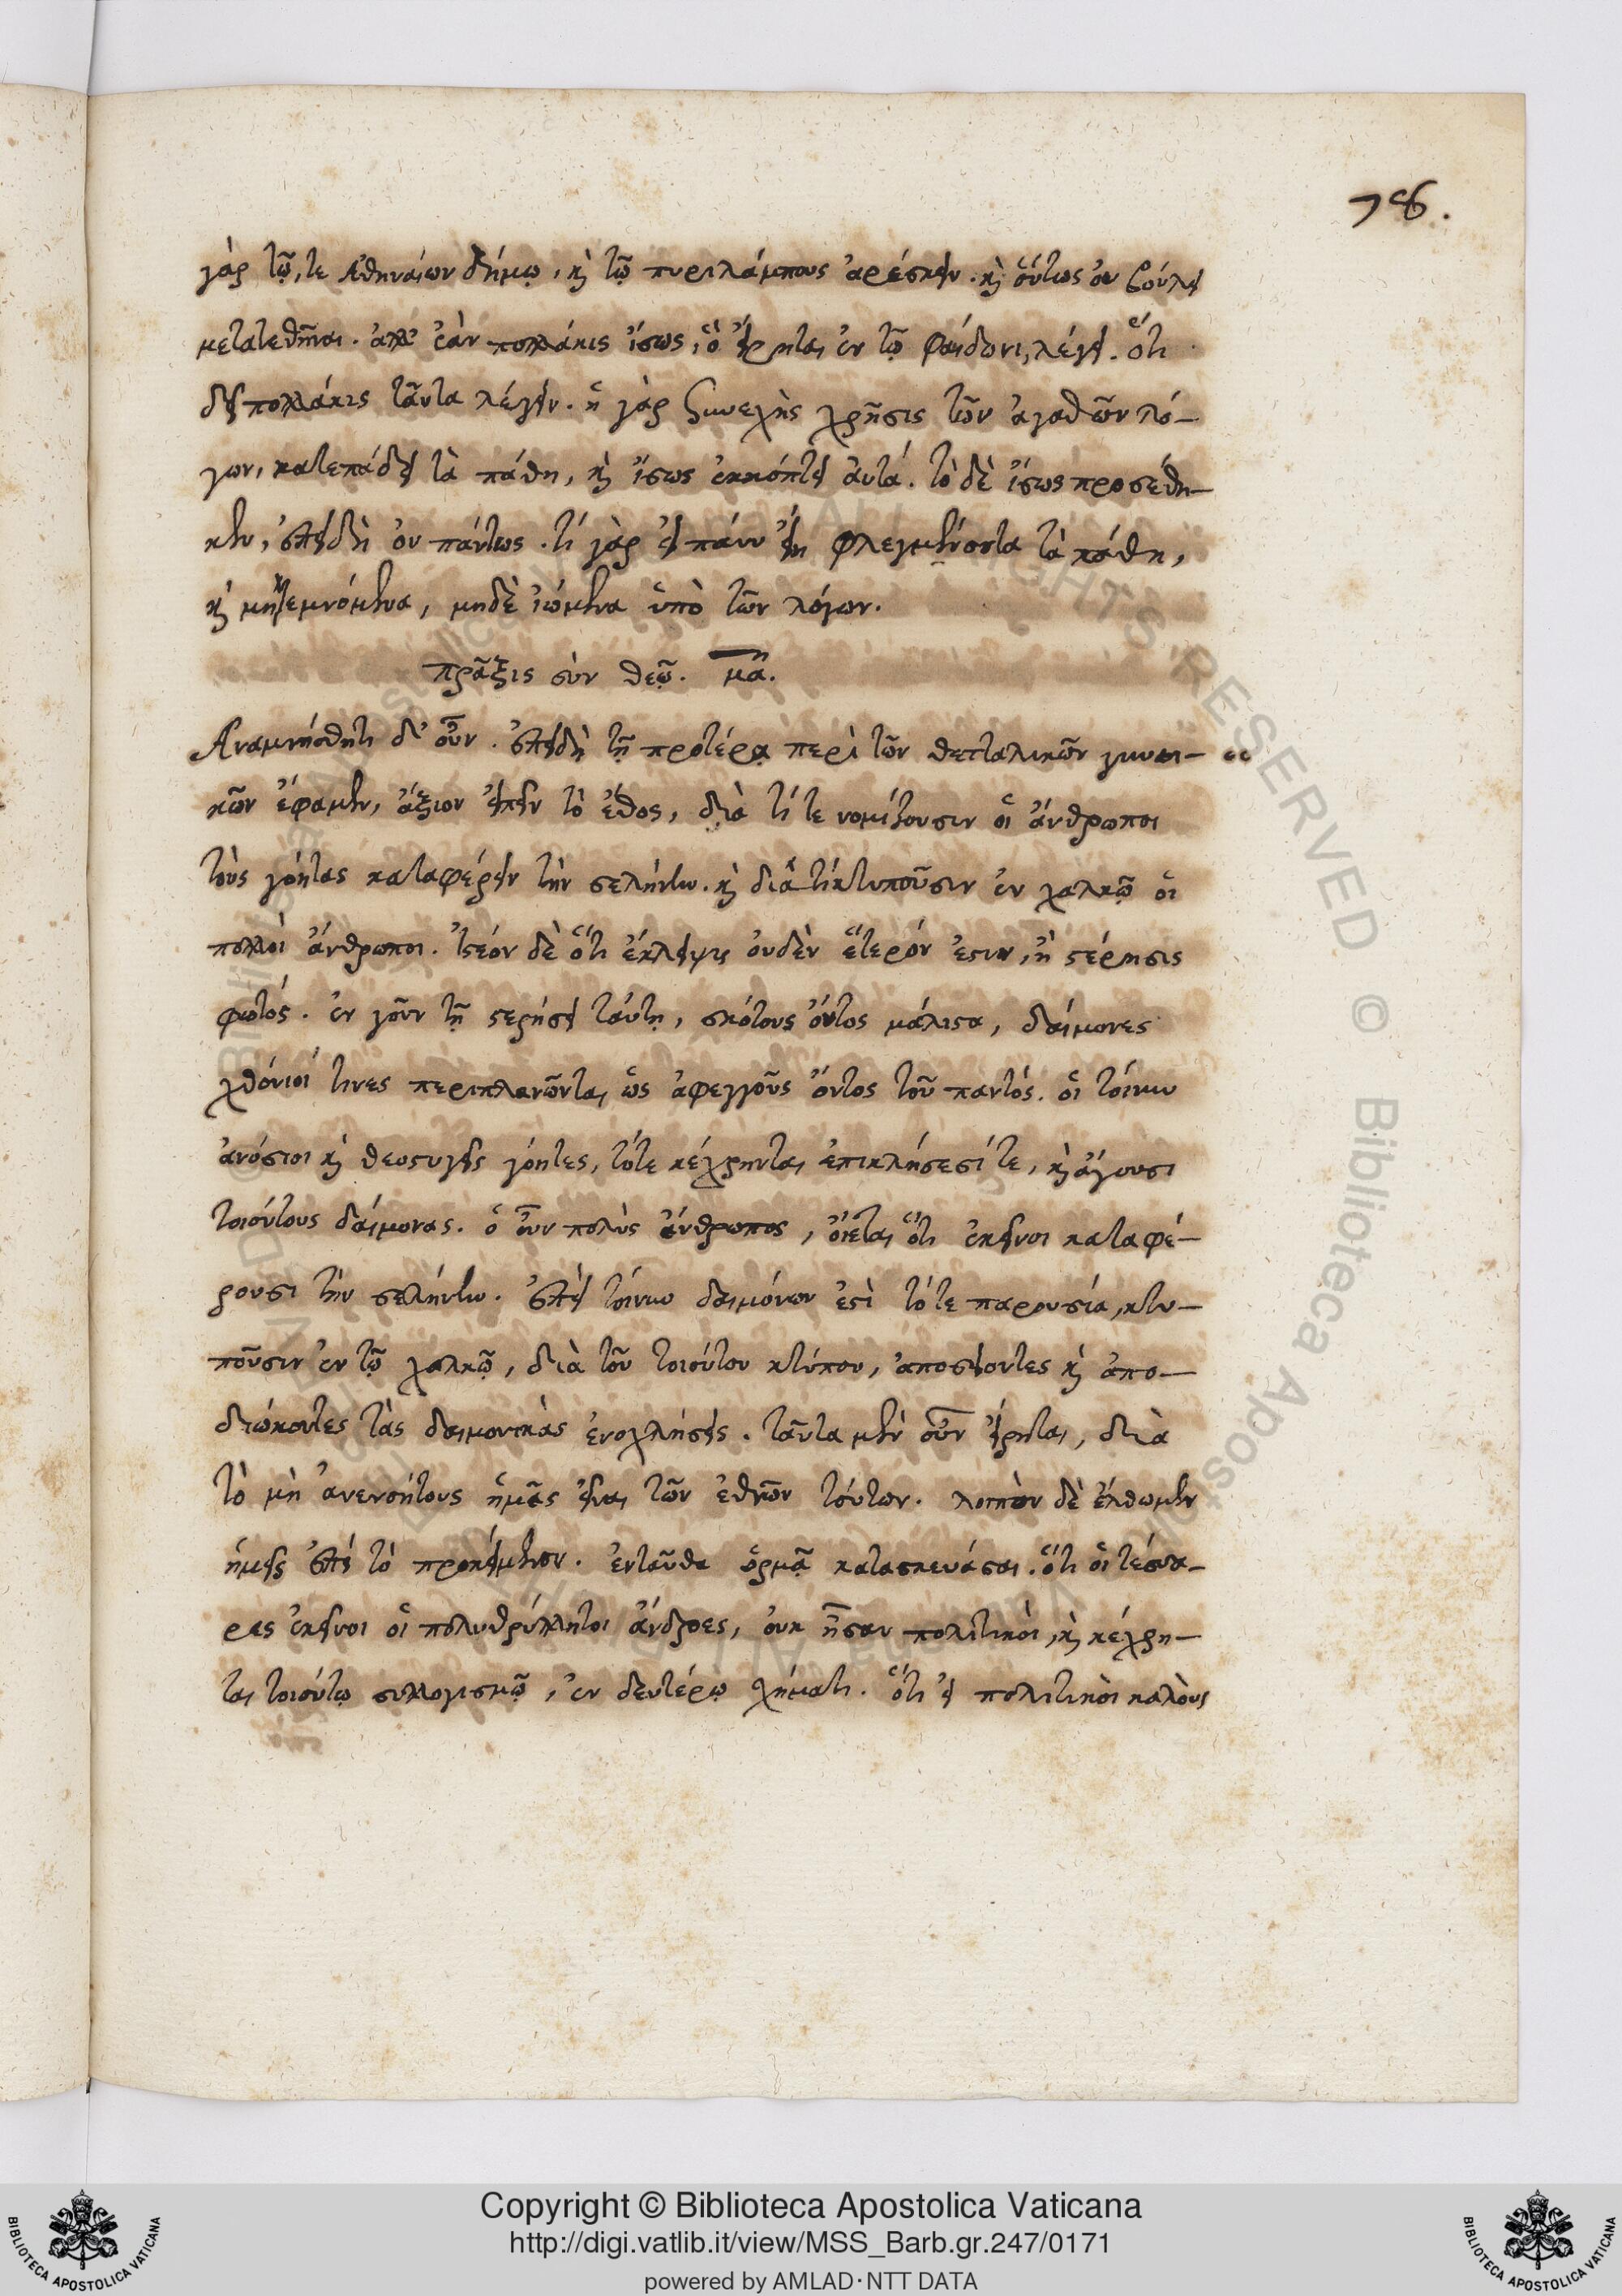 786.
γὰρ τῷ, τε Ἀθηναίων δήμῳ, κὴ τῷ πυριλάμπους ἀρέσκειν. κὴ οὕτως οὐ βούλει
μετατεθῆναι. ἀλλ' ἐὰν πολλάκις ἴσως, ὃ εἴρηται ἐν τῷ Φαίδωνι, λέγει. ὅτι
δεῖ πολλάκις ταῦτα λέγειν. ἡ γὰρ συνεχὴς χρῆσις τῶν ἀγαθῶν λό-
γων, κατεπάδει τὰ πάθη, κὴ ἴσως ἐκκόπτει αὐτά. τὸ δὲ ἴσως προσέθη-
κεν, ἐπειδὴ οὐ πάντως. τί γὰρ εἰ πάνυ εἴη φλεγμαίνοντα τὰ πάθη,
κὴ μὴ τεμνόμενα, μηδὲ ἰώμενα ὑπὸ τῶν λόγων.
πρᾶξις σὺν θεῷ. μα ̅η.
Ἀναμνήσθητι δ' οὖν. ἐπειδὴ τῇ προτέρᾳ περὶ τῶν θετταλικῶν γυναι-
κῶν ἔφαμεν, ἄξιον εἰπεῖν τὸ ἔθος, διὰ τί τε νομίζουσιν οἱ ἄνθρωποι
τοὺς γόητας καταφέρειν τὴν σελήνην. κὴ διὰ τί κτυποῦσιν ἐν χαλκῷ οἱ
πολλοὶ ἄνθρωποι. ἰστέον δὲ ὅτι ἔκλειψις οὐδὲν ἕτερόν ἐστιν, ἢ στέρησις
φωτός. ἐν γοῦν τῇ στερήσει ταύτῃ, σκότους ὄντος μάλιστα, δαίμονες
χθόνιοί τινες περιπλανῶνται ὡς ἀφεγγοῦς ὄντος τοῦ παντός. οἱ τοίνυν
ἀνόσιοι κὴ θεοστυγεῖς γόητες, τότε κέχρηνται ἐπικλήσεσί τε, κὴ ἄγουσι
τοιούτους δαίμονας. ὁ οὖν πολὺς ἄνθρωπος, οἴεται ὅτι ἐκεῖνοι καταφέ-
ρουσι τὴν σελήνην. ἐπεὶ τοίνυν δαιμόνων ἐστὶ τότε παρουσία, κτυ-
ποῦσιν ἐν τῷ χαλκῷ, διὰ τοῦ τοιούτου κτύπου, ἀποσείοντες κὴ ἀπο-
διώκοντες τὰς δαιμονικὰς ἐνοχλήσεις. ταῦτα μὲν οὖν εἴρηται, διὰ
τὸ μὴ ἀνενοήτους ἡμᾶς εἶναι τῶν ἐθνῶν τούτων. λοιπὸν δὲ ἔλθωμεν
ἡμεῖς ἐπὶ τὸ προκείμενον. ἐνταῦθα ὁρμᾷ κατασκευάσαι. ὅτι οἱ τέσσα-
ρες ἐκεῖνοι οἱ πολυθρύλλητοι ἄνδρες, οὐκ ἦσαν πολιτικοὶ, κὴ κέχρη-
ται τοιούτῳ συλλογισμῷ, ἐν δευτέρῳ σχήματι. ὅτι εἰ πολιτικοὶ καλοὺς
Copyright © Biblioteca Apostolica Vaticana
http://digi.vatlib.it/view/MSS_Barb.gr.247/0171
powered by AMLAD·NTT DATA
BIBLIOTECA APOSTOLICA VATICANA
BIBLIOTECA APOSTOLICA VATICANA